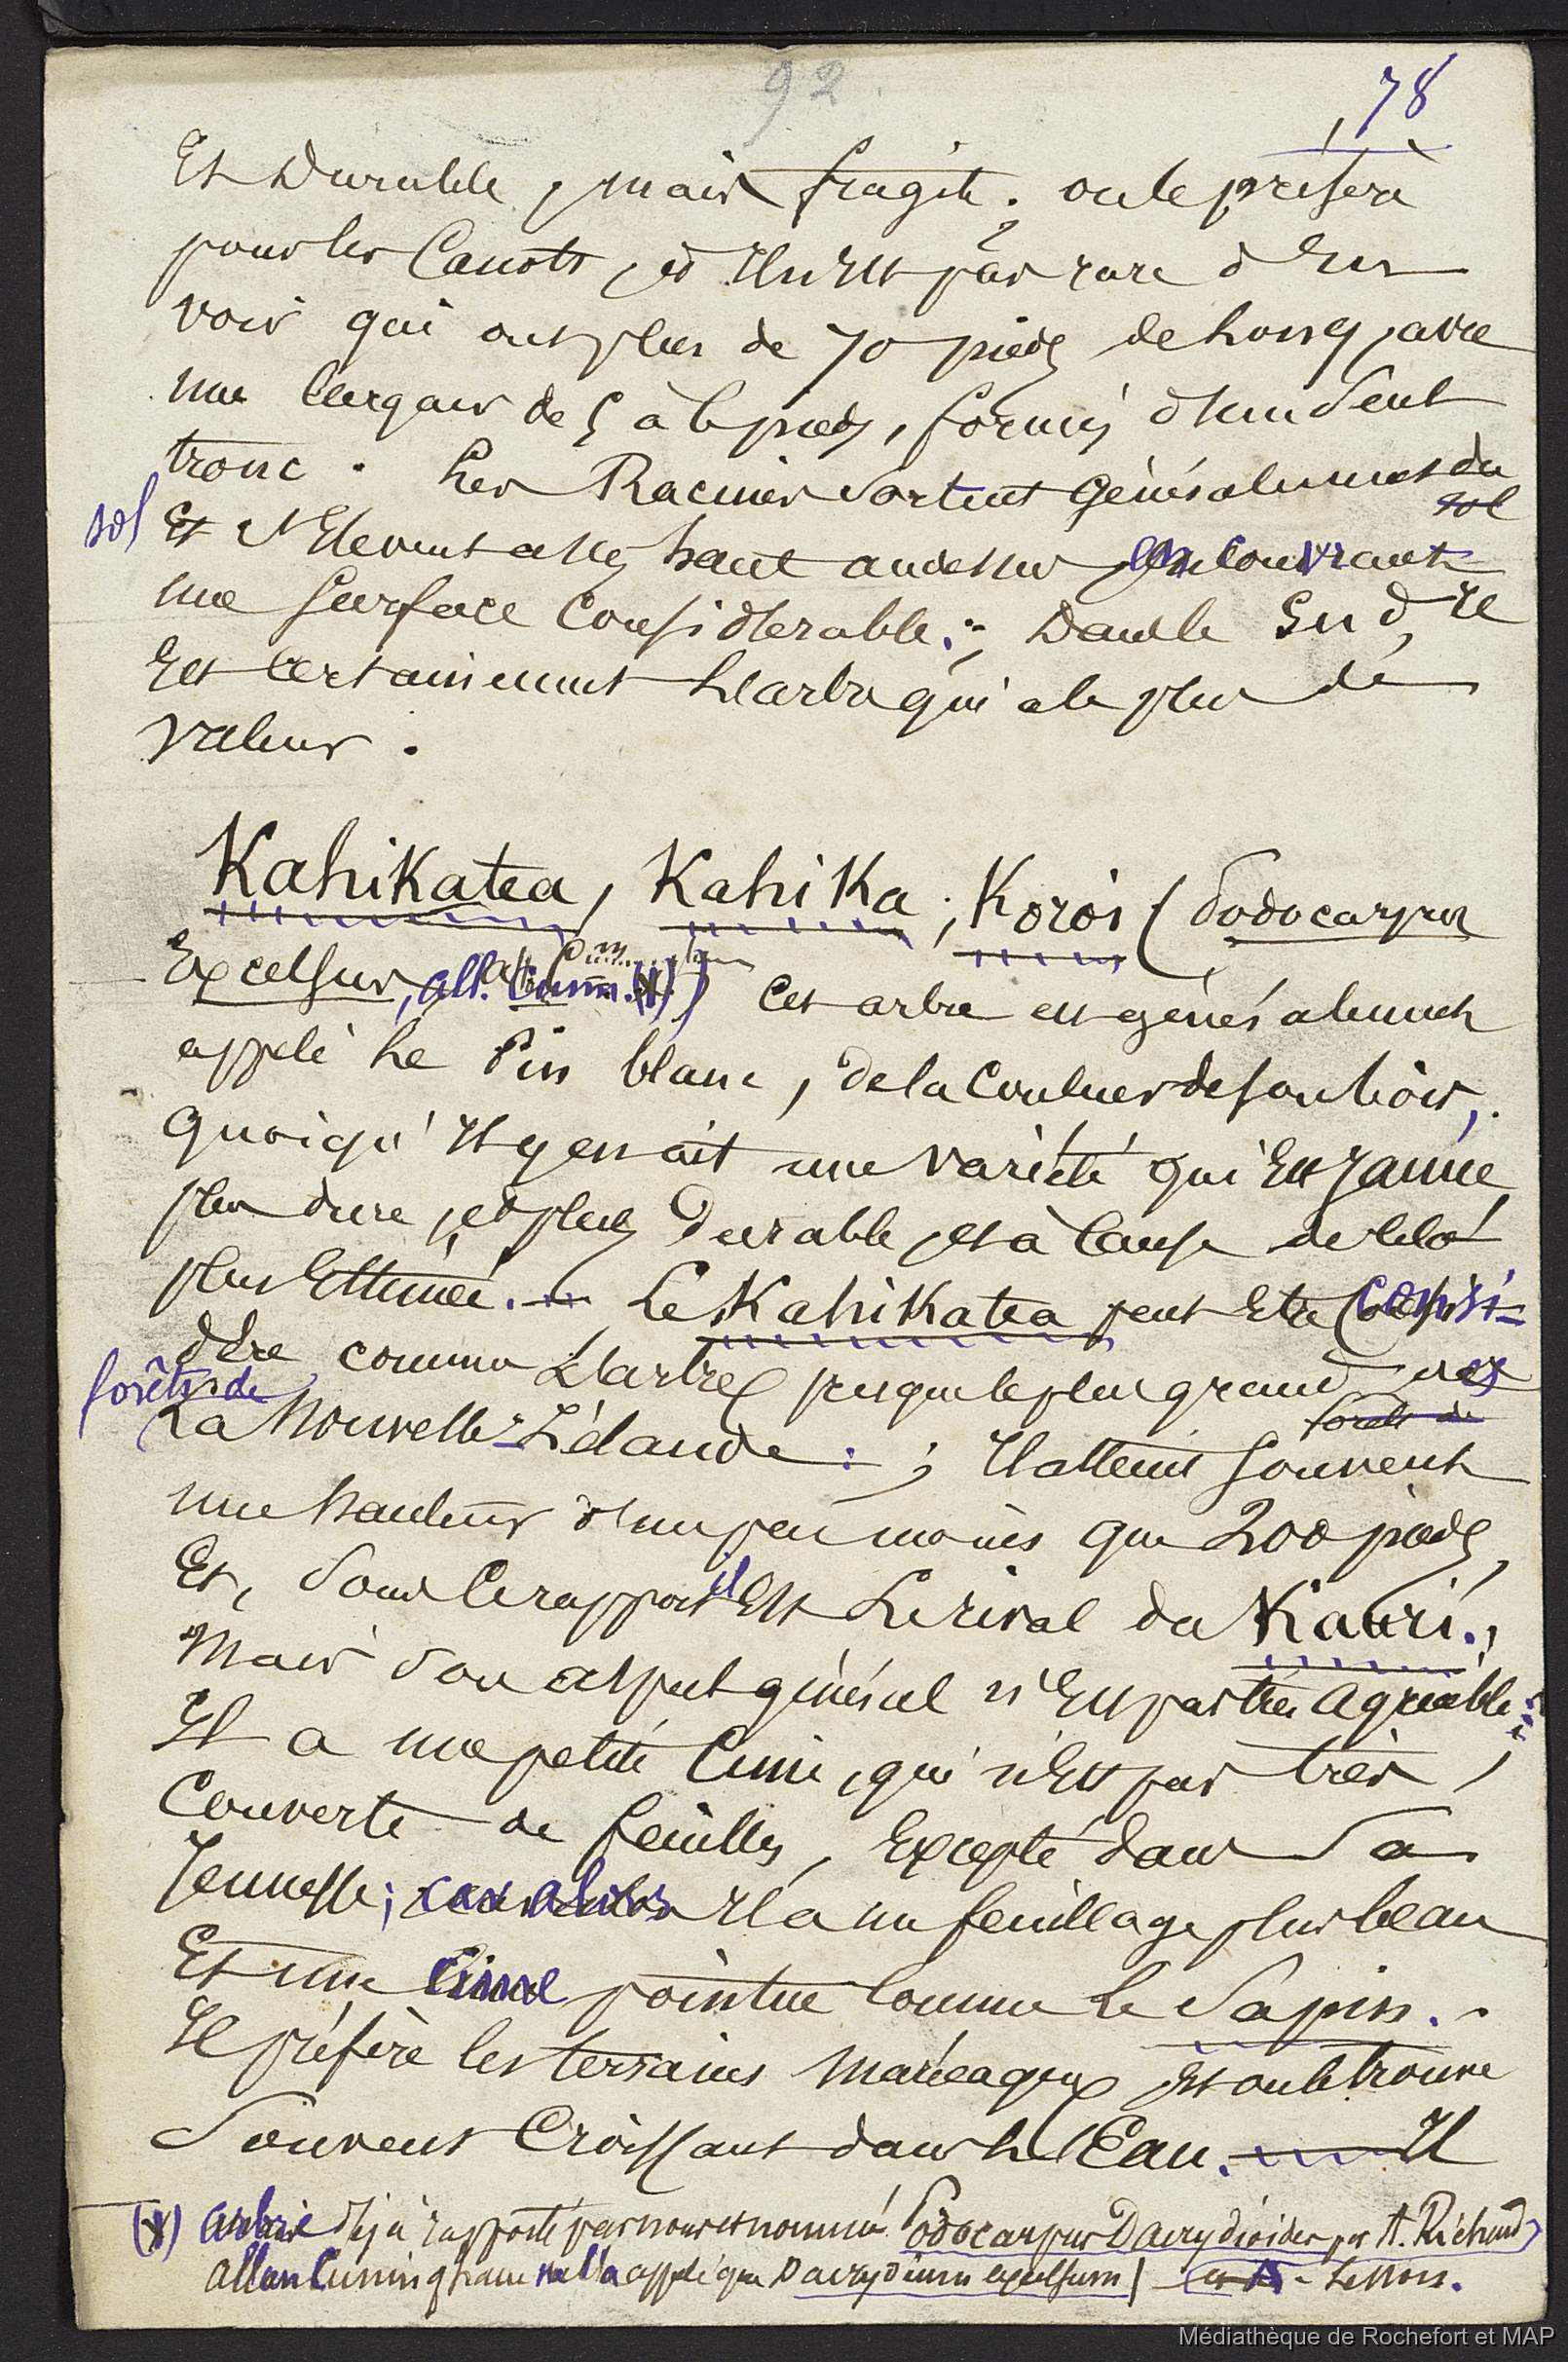 92.
78
Et durable, mais fragile; on le préfère
pour les Canots, et Il n'Est pas rare d'En
voir qui ont plus de 70 pieds de Long, avec
une largeur de 5 à 6 pieds, formés d'un Seul
tronc. Les Racines Sortent Généralement du
sol
sol Et S'Elèvent assez haut audessus en couvrant
une Surface Considérable; Dans le Sud, Il
Est Certainement L'arbre qui a le plus de
valeur.
Kahikatea, Kahika, Koroï (Podocarpus
Excelsus, all. Cunn. (1)) Cet arbre est généralement
appelé Le Pin blanc, de la Couleur de son bois,
Quoiqu'Il y en ait une variété qui Est Jaune,
plus dure, et plus Durable, et à Cause de Cela
plus Estimée. — Le Kahikatea peut Etre Consi-
déré comme L'arbre presque le plus grand des
forêts de
forêts de La Nouvelle-Zélande; Il atteint Souvent
une hauteur d'un peu moins que 200 pieds,
Et, Sous Ce rapport il Est Le rival du Kauri.;
Mais Son aspect général n'Est pas très agréable;
Il a une petite Cime, qui n'Est pas très
Couverte de feuilles, Excepté dans Sa
Jeunesse; car alors Il a un feuillage plus beau
Et une Cime pointue Comme Le Sapin.
Il préfère les terrains Marécageux Et on le trouve
Souvent Croissant dans L'Eau. — Il
(1) arbre déjà rapporté par nous et nommé Podocarpus Dacrydioides par A. Richard
allan Cuningham l'a appelé que Dacrydium excelsum) — A. Lesson.
Médiathèque de Rochefort et MAP